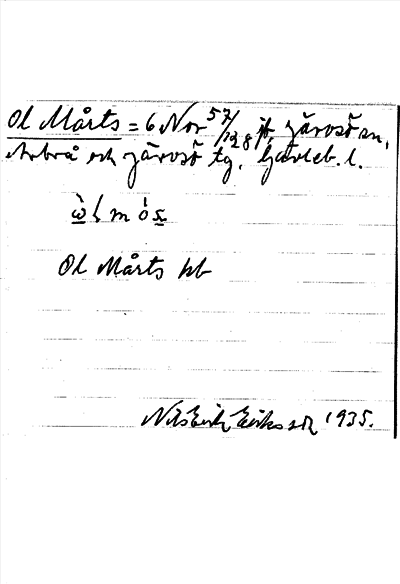 Ol Mårts = 6 Nor 57/128 jb, Järvsö sn,
Arbrå och Järvsö tg. Gävleb. l.
Ol Mårts kb
Nils Erik Eriksson 1935.